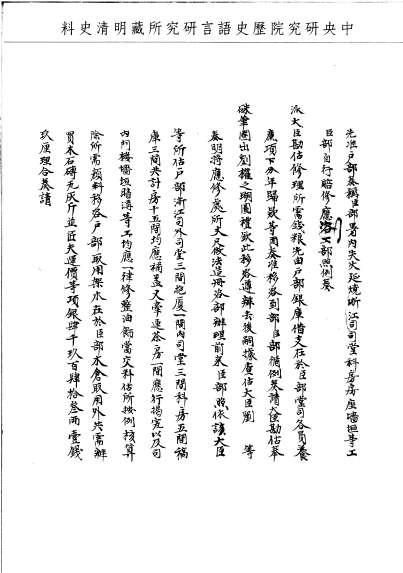 中央研究院歷史語言研究所藏明清史料
先准戶部奏稱臣部署內失火延燒浙江司司堂科房房屋墻垣等工
臣部自行賠修應洛工部照例奏
派大臣勘估修理所需錢粮先由戶部銀庫借支在於臣部堂司各員養
廉項下分年歸欵等因奏准移咨到部臣部循例奏請大臣勘估奉
硃筆圈出劉權之瑚圖禮欽此移咨遵辦去後嗣據查估大臣劉 等
奏明將應修處所丈尺做法造冊咨部辦理前來臣部照依該大臣
等所估戶部浙江司外司堂三間抱廈一間內司堂三間科房五間稿
庫三間共計房十五間均應補蓋又牽連茶房一間應行揭瓦以及司
內門樓墻垣踏海等工均應一律修整油飾當交料估所按例核算
除所需顏料移咨戶部取用架木在於臣部木倉取用外共需辦
買木石磚瓦灰斤並匠夫運價等項銀肆千玖百肆拾叁兩壹錢
玖厘理合奏請